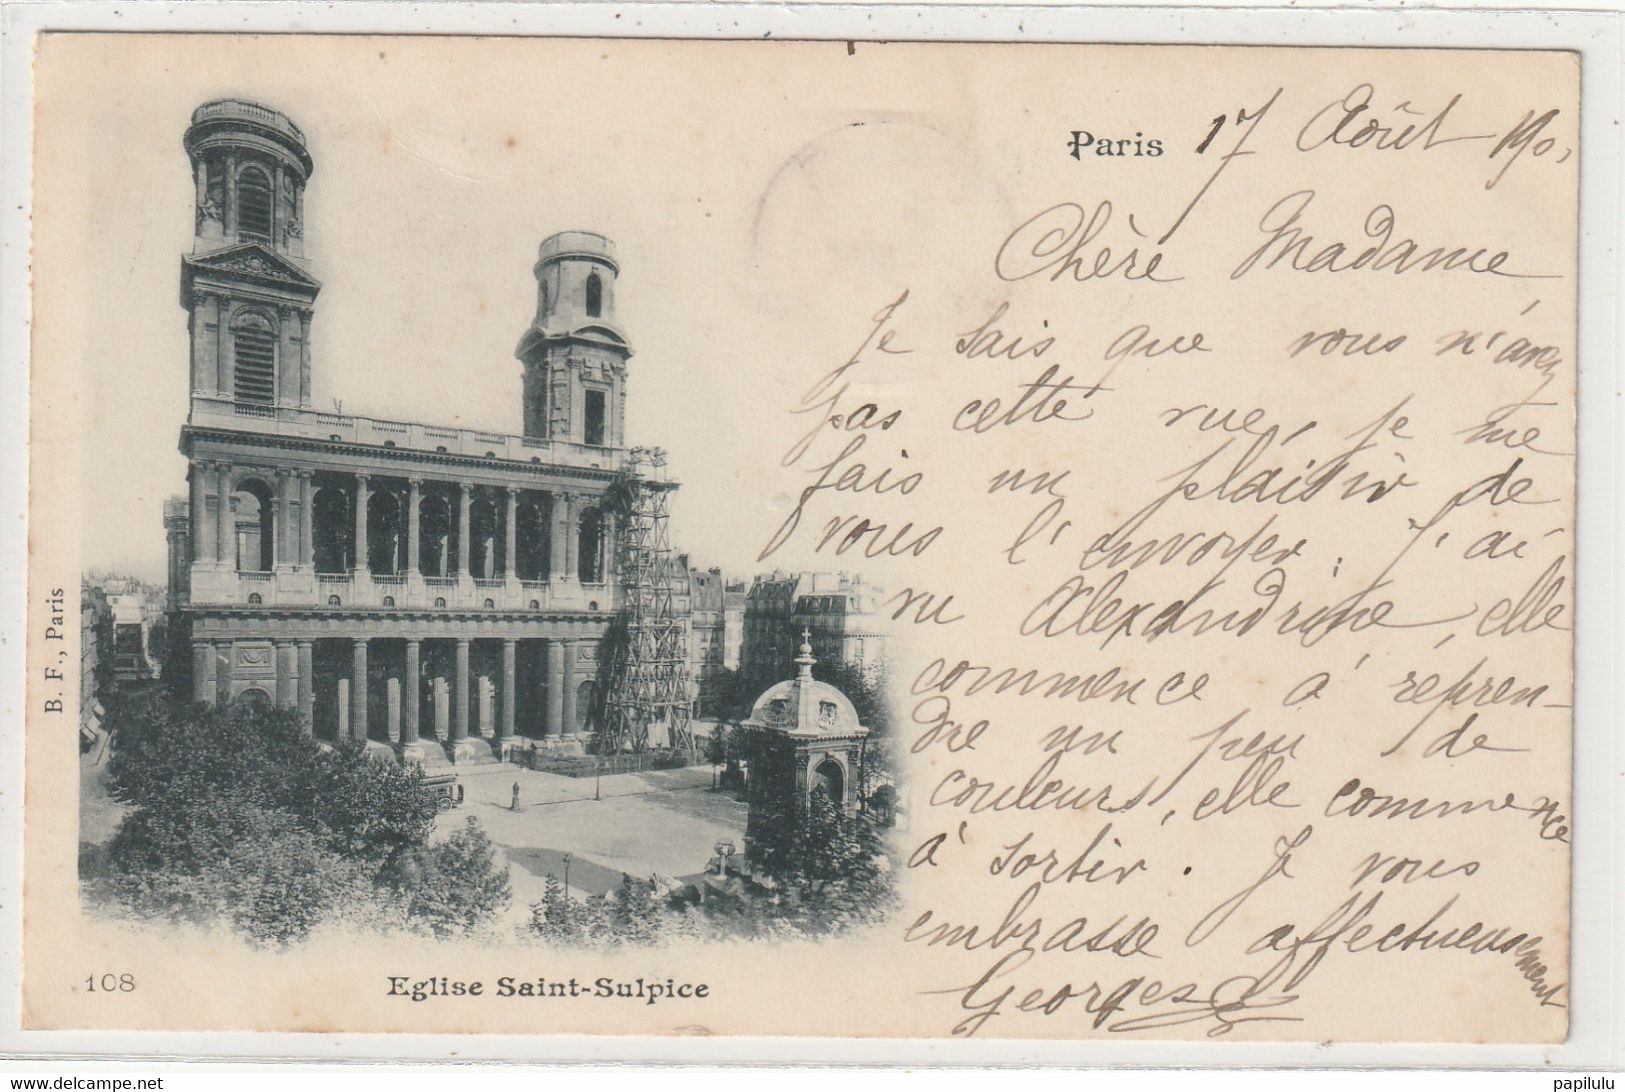 Paris 17 Août 190,
Chère Madame
Je sais que vous n'avez
pas cette rue, je me
fais un plaisir de
vous l'envoyer. J'ai
vu Alexandrine, elle
commence à repren-
dre un peu de
couleurs, elle commence
à sortir. Je vous
embrasse affectueusement
Georges
B. F., Paris
108
Eglise Saint-Sulpice
www.delcampe.net
papilulu